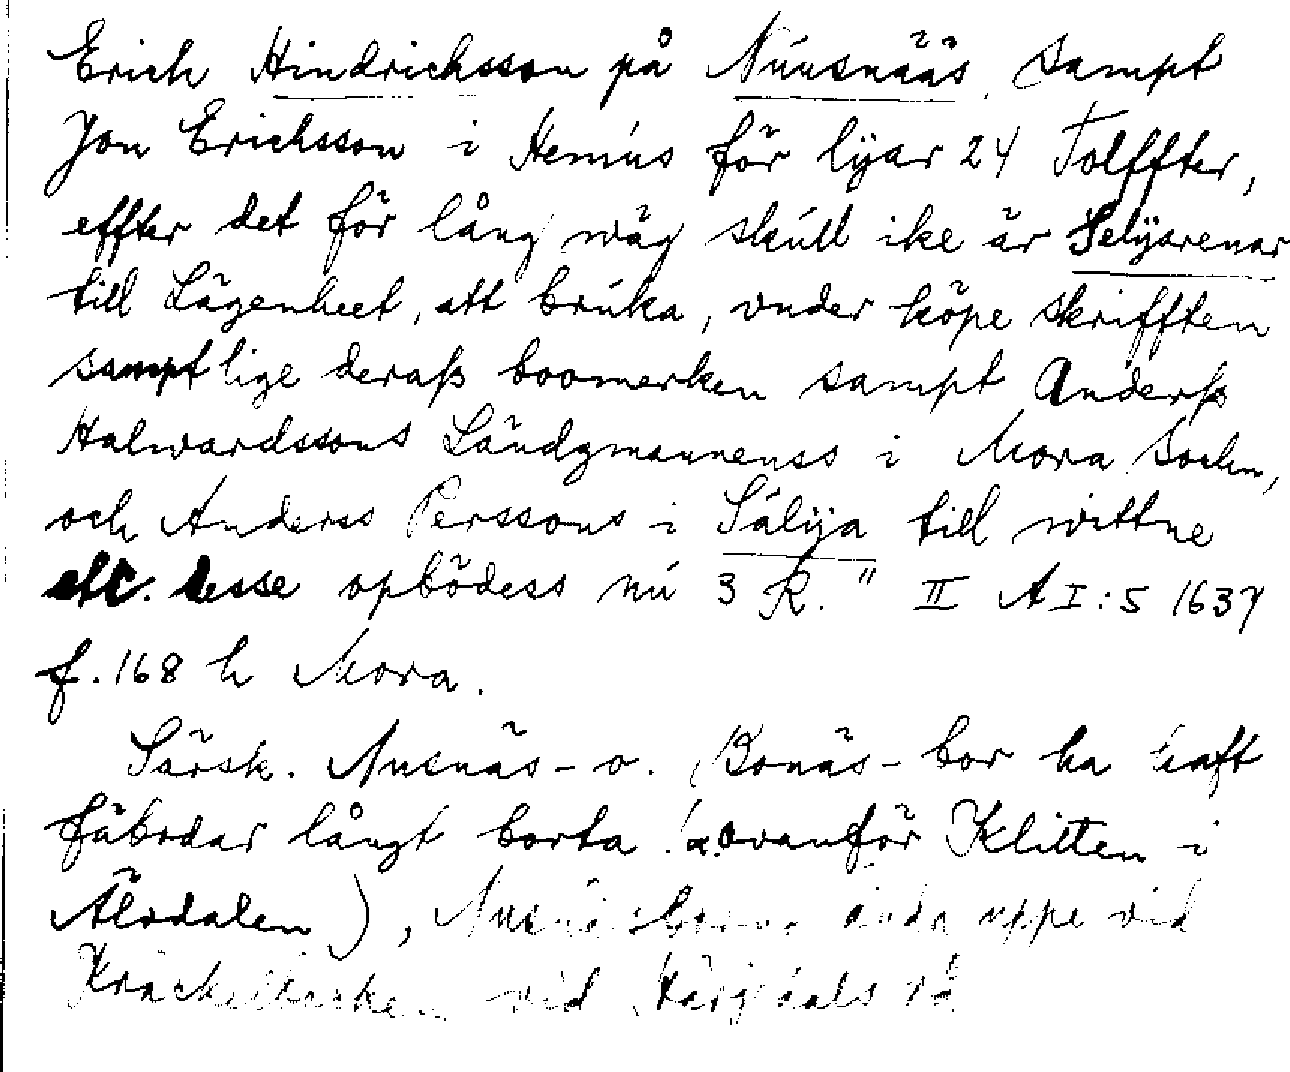 Erich Hindrichsson på Núusnääs, sampt
Jon Erichsson i Hemús för lijar 24 Tolffter,
effter det för lång wäg skúll ike är Selijarenar
till Lägenheet, att brúka, vnder köpe skrifften
samptlige deraß boomerken sampt Anderß
Halwardssons Ländzmannenss i Mora Sochn,
och Anderss Perssons i Sälija till wittne
etc. desse opbödess nú 3 R." II A I:5 1637
f. 168 h Mora.
Särsk. Nusnäs- o. Bonäs-bor ha haft
fäbodar långt borta (ovanför Klitten i
Älvdalen), Nusnäsborna ända uppe vid
Kräckelbäcken vid Härjedals rå